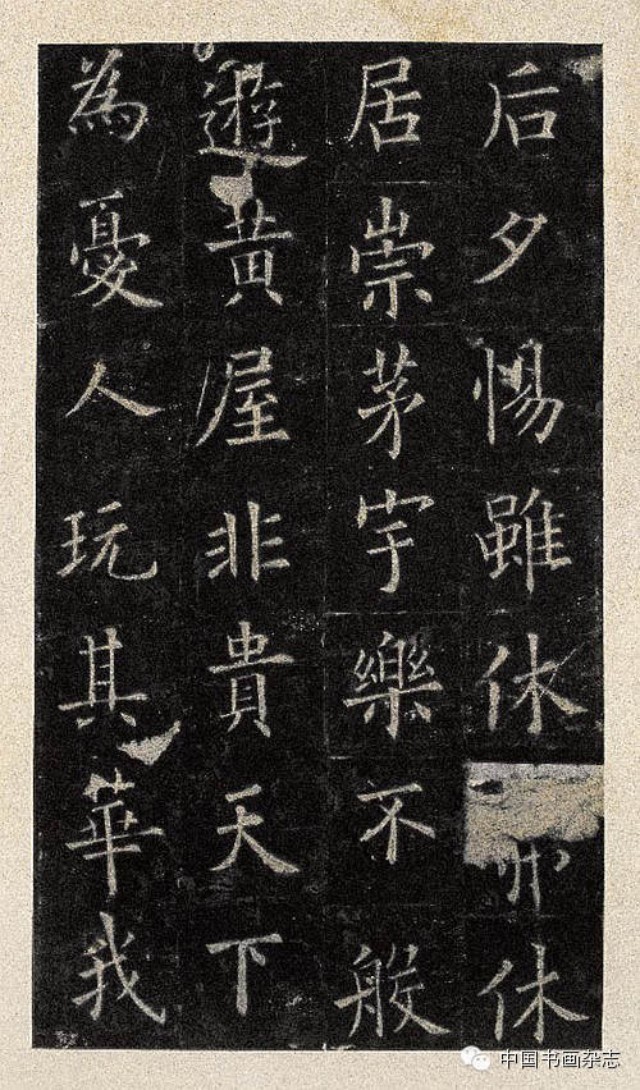 后夕惕雖休休
居崇茅宇樂不般
遊黃屋非貴天下
為憂人玩其華我
中国书画杂志